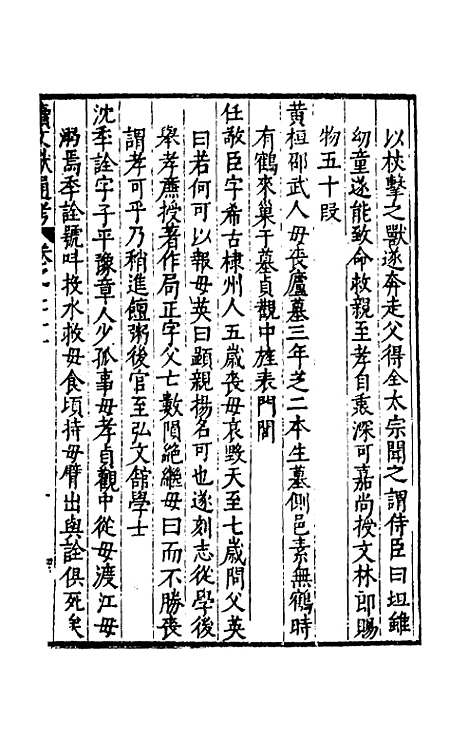 以杖擊之獸遂奔走父得全太宗聞之謂侍臣曰坦雖
幼童遂能致命救親至孝自衷深可嘉尚授文林郎賜
物五十段
黄桓邵武人母喪廬墓三年芝二本生墓側邑素無鶴時
有鶴來巢于墓貞觀中旌表門閭
任敬臣字希古棣州人五歲喪母哀毁天至七歲問父英
曰若何可以報母英曰顯親揚名可也遂刻志從學後
舉孝廉授著作局正字父亡數隕絶繼母曰而不勝喪
謂孝可乎乃稍進饘粥後官至弘文舘學士
沈季詮字子平豫章人少孤事母孝貞觀中從母渡江母
溺焉季詮號呌投水救母食頃持母臂出與詮俱死矣
續文獻通考 卷之七十一